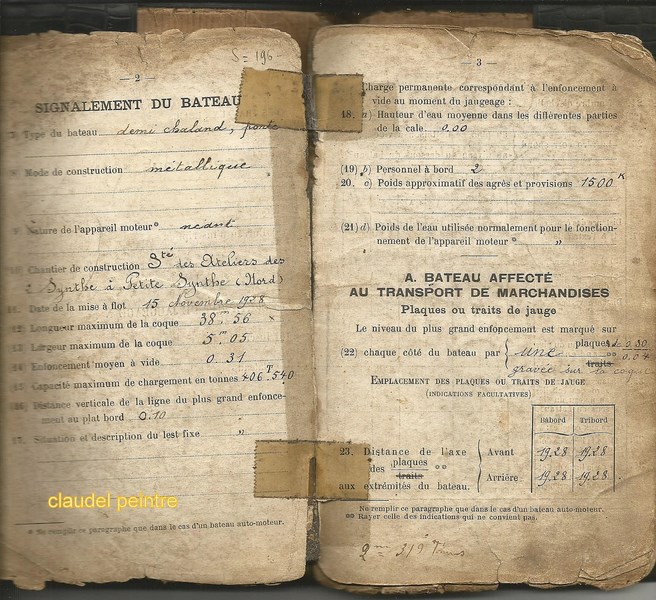 S = 196
— 2 —
SIGNALEMENT DU BATEAU
Type du bateau demi chaland, ponté
Mode de construction métallique
Nature de l'appareil moteur* néant
Chantier de construction Sté des Ateliers des
Synthe à Petite Synthe (Nord)
11. Date de la mise à flot 15 Novembre 1928
12) Longueur maximum de la coque 38m 56
13. Largeur maximum de la coque 5m 05
14. Enfoncement moyen à vide 0.31
15. Capacité maximum de chargement en tonnes 406T540
16. Distance verticale de la ligne du plus grand enfonce-
ment au plat bord 0.10
17. Situation et description du lest fixe "
claudel peintre
* Ne remplir ce paragraphe que dans le cas d'un bateau auto-moteur.
— 3 —
Charge permanente correspondant à l'enfoncement à
vide au moment du jaugeage :
18. a) Hauteur d'eau moyenne dans les différentes parties
de la cale 0.00
(19) b) Personnel à bord 2
20. c) Poids approximatif des agrès et provisions 1500 K
(21) d) Poids de l'eau utilisée normalement pour le fonction-
nement de l'appareil moteur* "
A. BATEAU AFFECTÉ
AU TRANSPORT DE MARCHANDISES
Plaques ou traits de jauge
Le niveau du plus grand enfoncement est marqué sur
plaques de 0.30
(22) chaque côté du bateau par une 0.04
traits
gravée sur la coque
EMPLACEMENT DES PLAQUES OU TRAITS DE JAUGE
(INDICATIONS FACULTATIVES)
Bâbord Tribord
23. Distance de l'axe Avant 19,28 19,28
des plaques traits **
aux extrémités du bateau. Arrière 19,28 19,28
Ne remplir ce paragraphe que dans le cas d'un bateau auto-moteur.
** Rayer celle des indications qui ne convient pas.